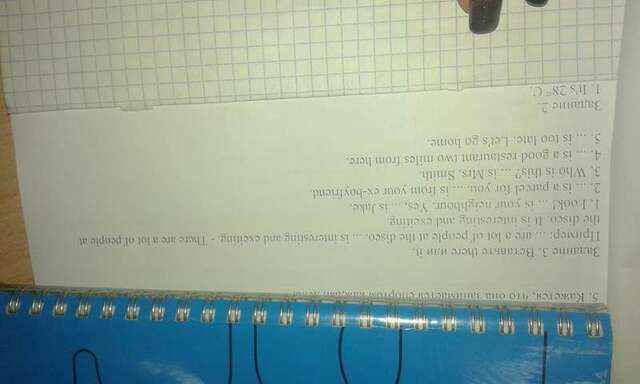 5. Кажется, что она занимается спортом каждый
Задание 3. Вставьте there или it.
Пример: ... are a lot of people at the disco. ... is interesting and exciting. - There are a lot of people at
the disco. It is interesting and exciting.
1. Look! ... is your neighbour. Yes, ... is Jake.
2. ... is a parcel for you. ... is from your ex-boyfriend.
3. Who is this? ... is Mrs. Smith.
4. ... is a good restaurant two miles from here.
5. ... is too late. Let's go home.
Задание 2
1. It's 28° C.